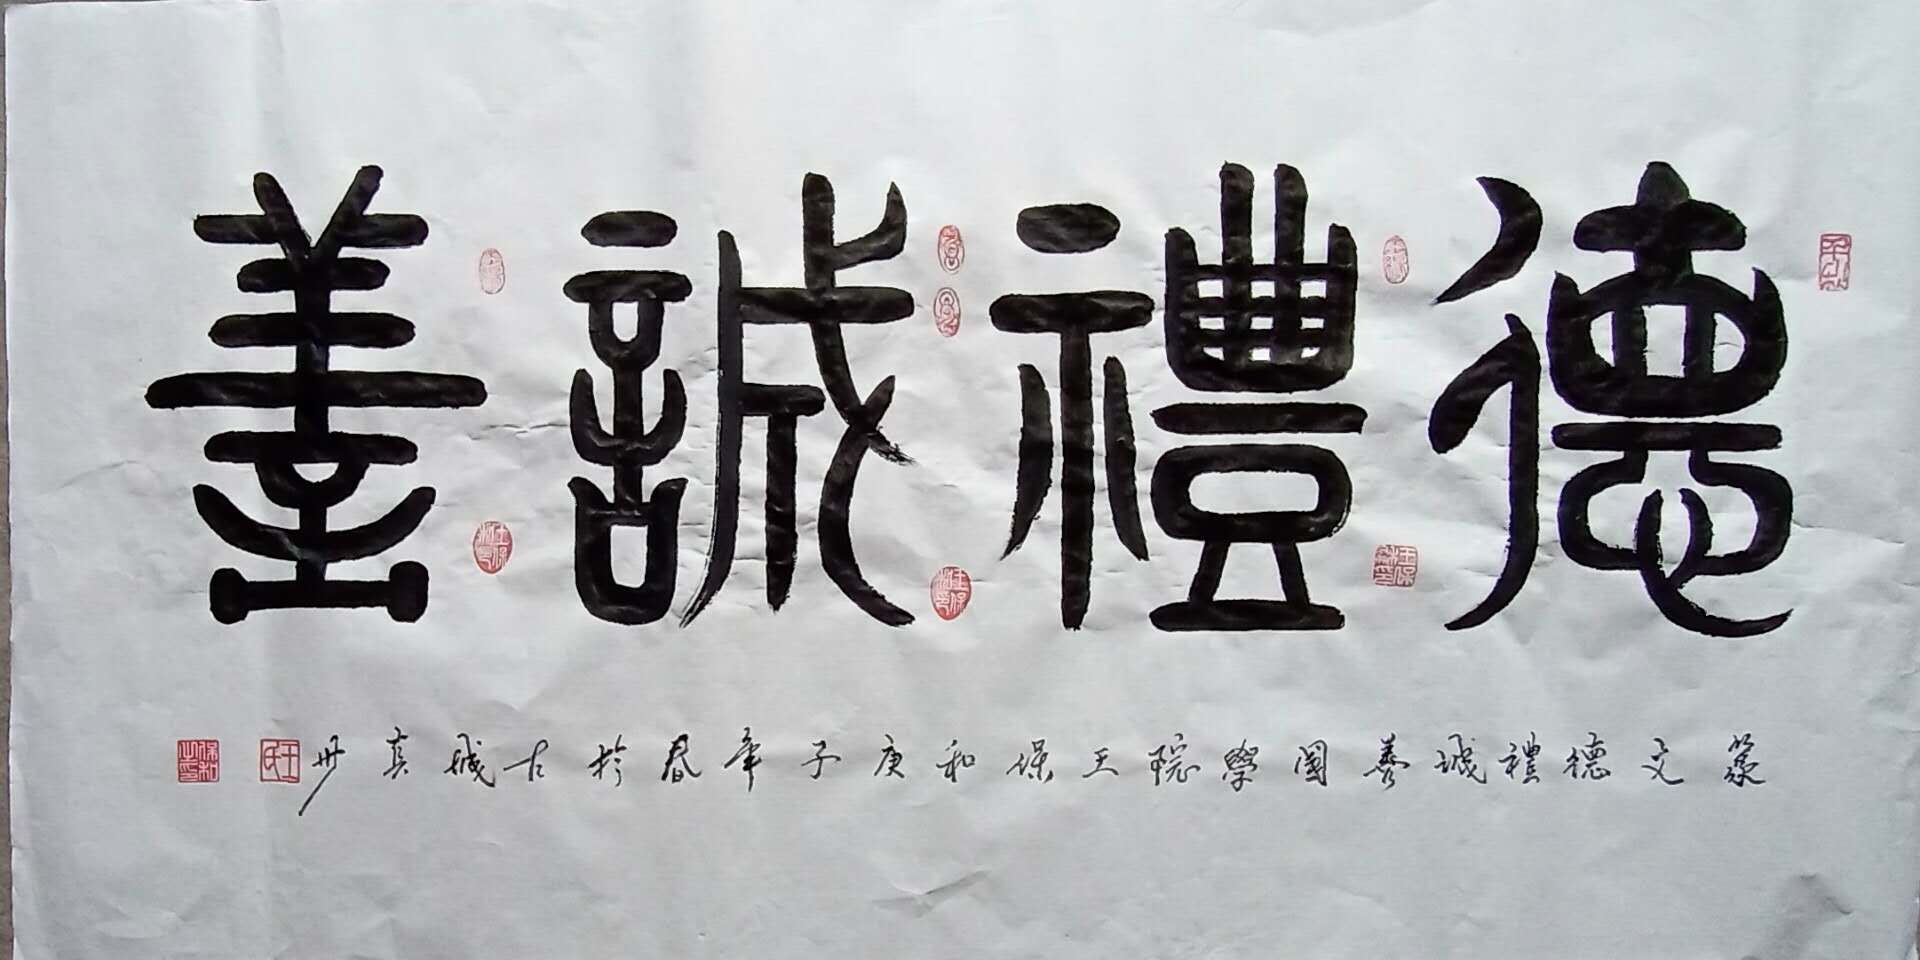 德禮誠善
篆文德禮誠善國學院王保和庚子年春於古城真州
王氏
保和之印